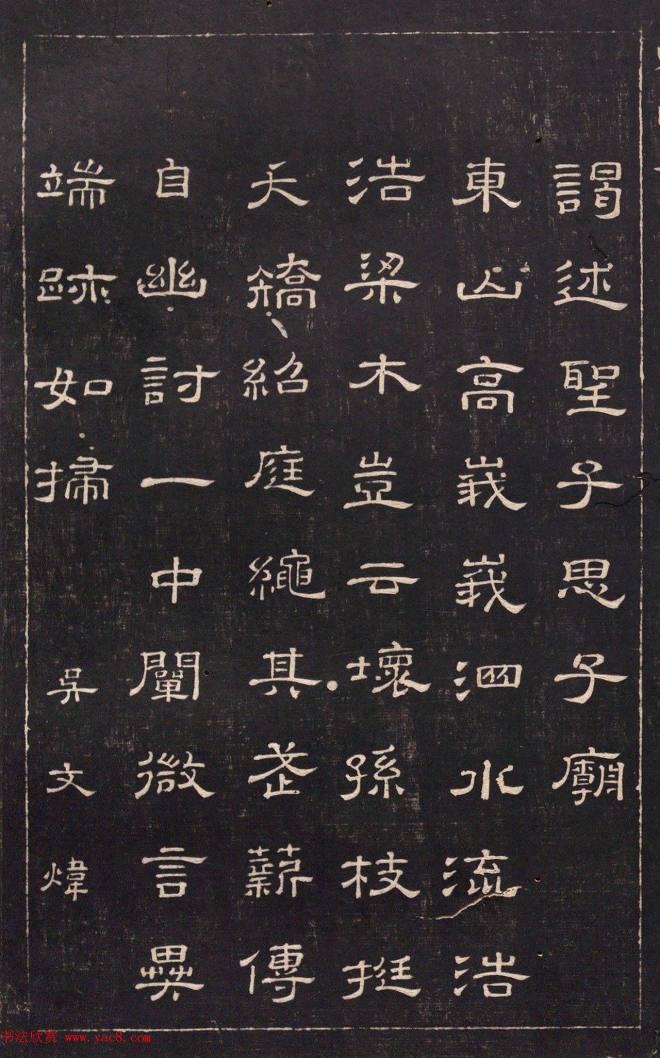 謁述聖子思子廟
東山高峩峩泗水流浩
浩梁木豈云壞孫枝挺
夭矯紹庭繩其武薪傳
自幽討一中闡微言異
端跡如掃
吳文煒
书法欣赏 www.yac8.com